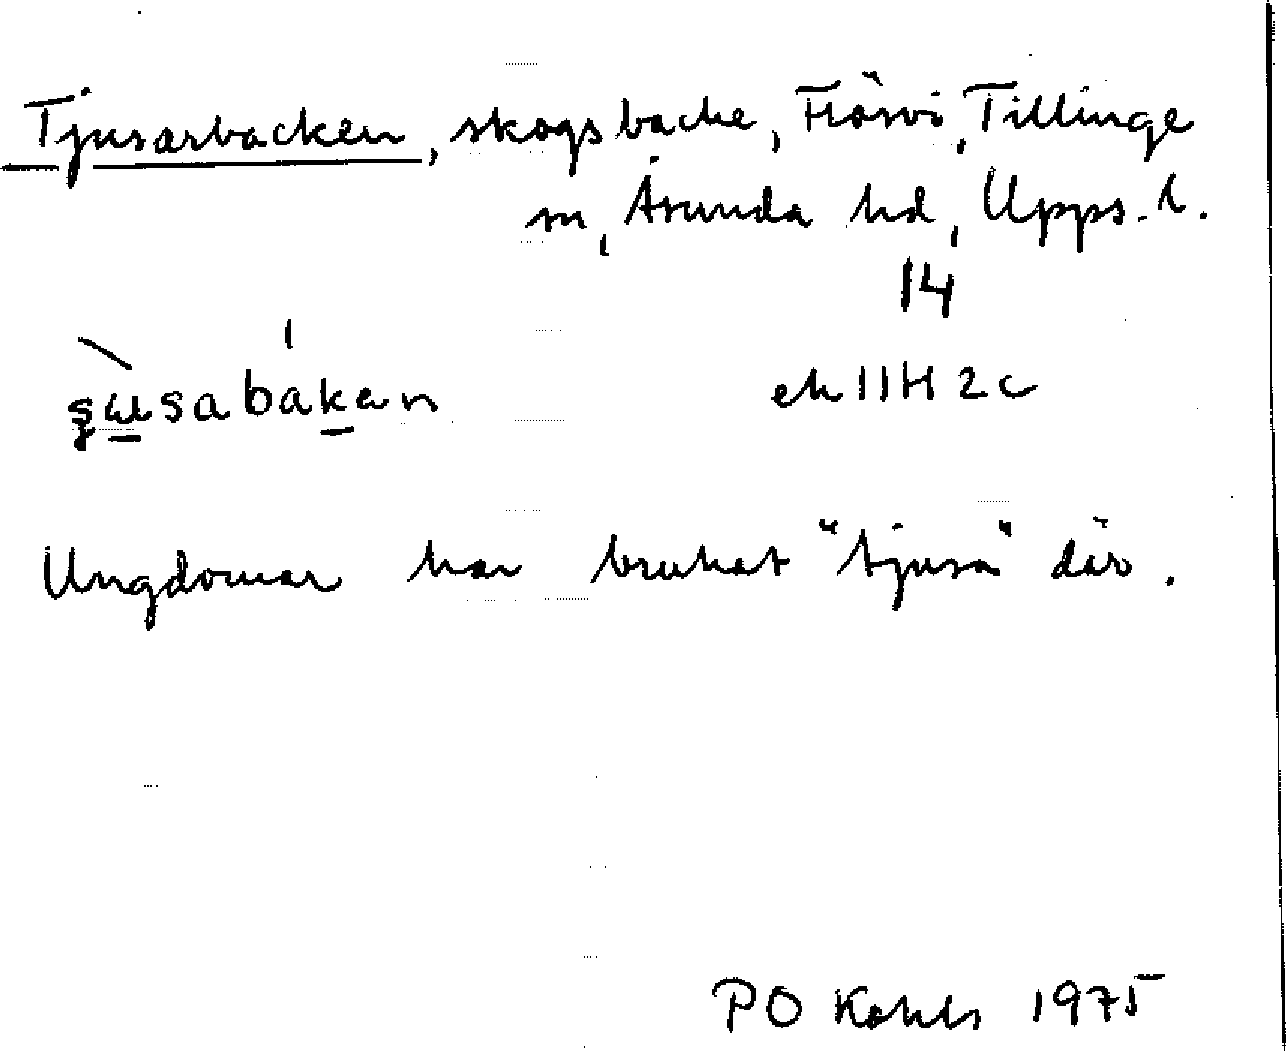 Tjusarbacken, skogsbacke, Frösvi, Tillinge
sn, Åsunda hd, Upps. l.
14
ek 11H 2c
Ungdomar har brukat "tjusa" där.
PO Kahls 1975